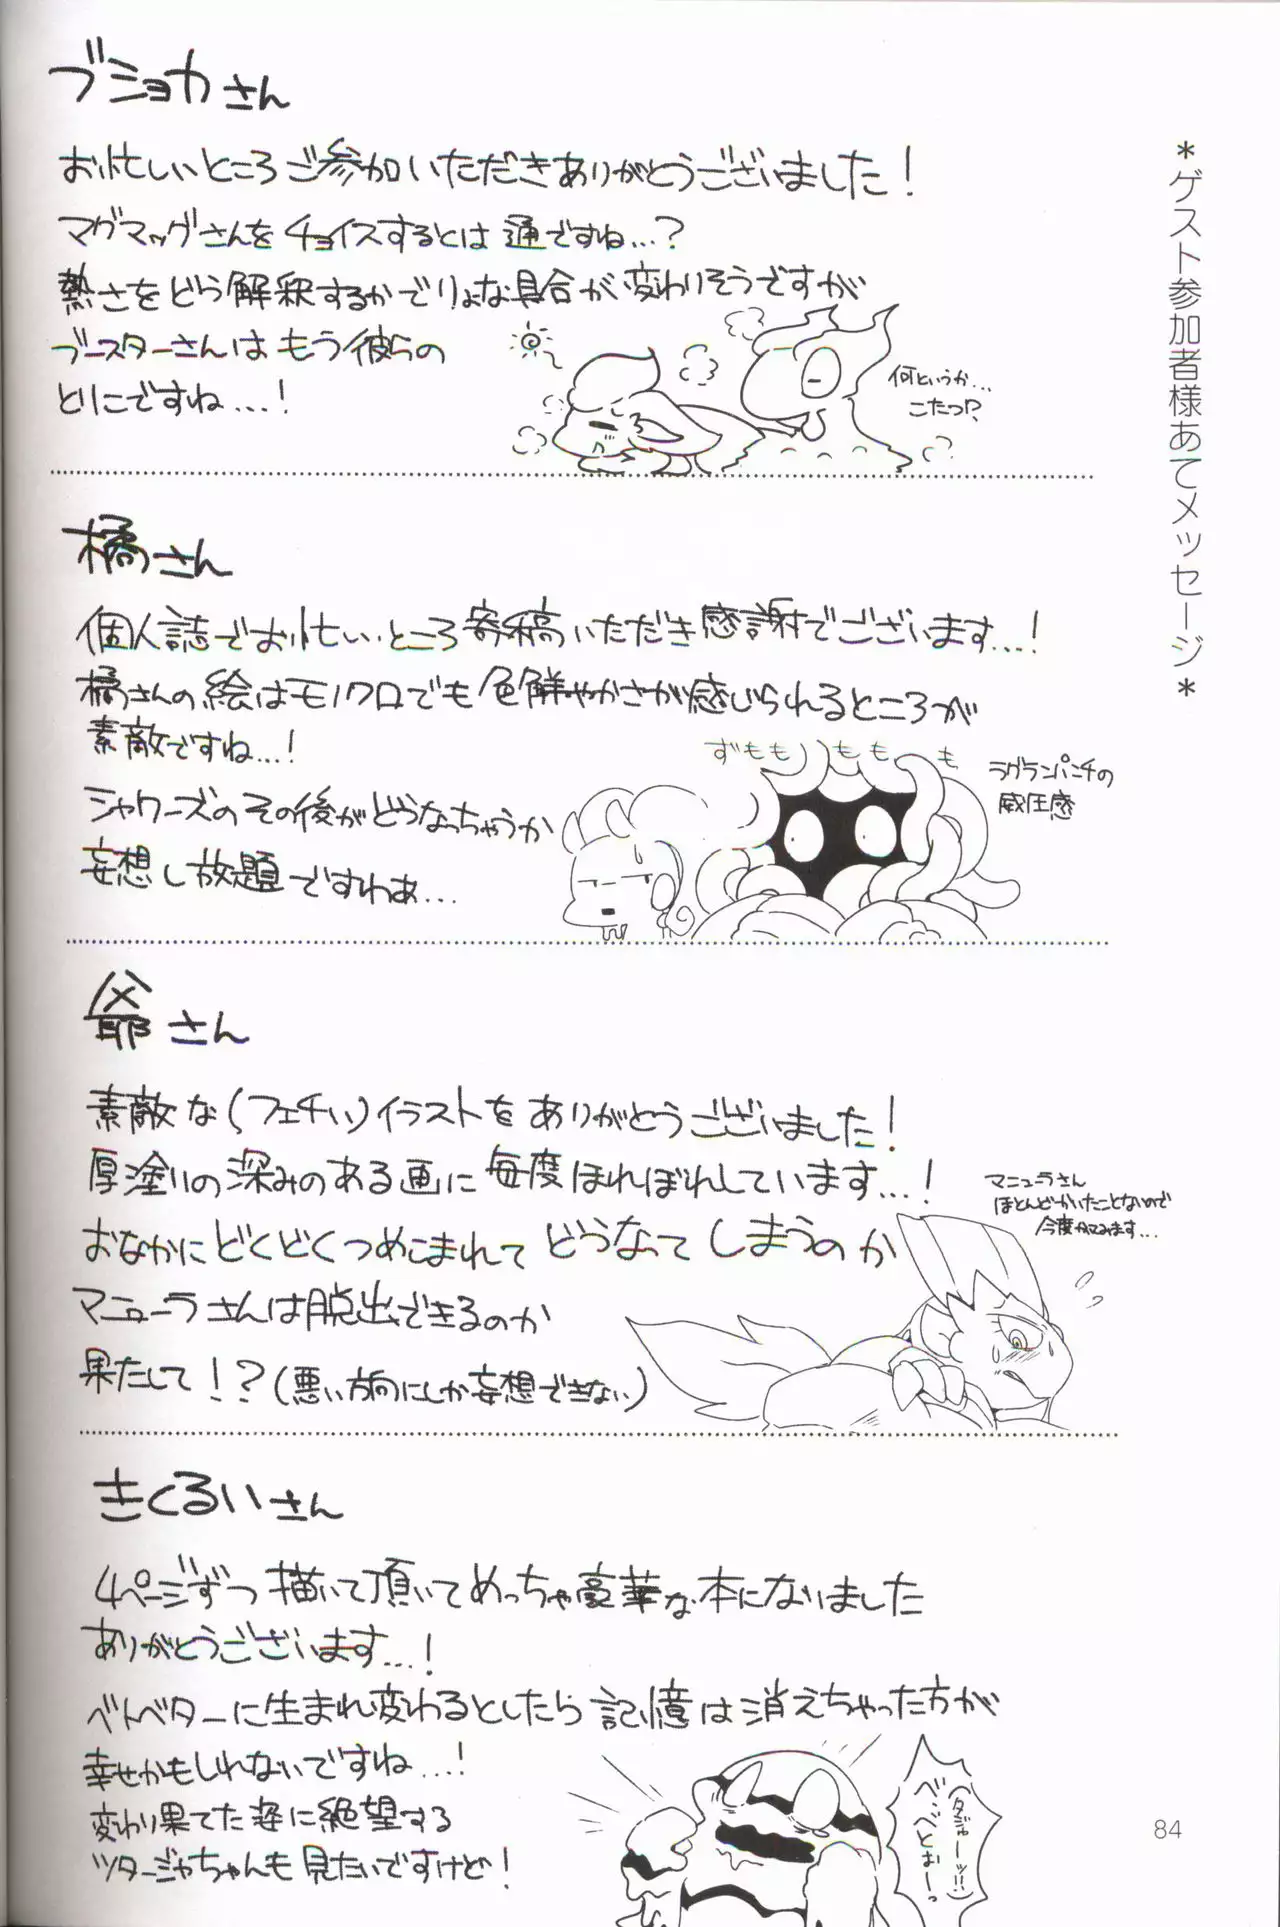 *ゲスト参加者様あてメッセージ*
ブショカさん
お忙しいところご参加いただきありがとうございました!
マグマッグさんをチョイスするとは通ですね…?
熱さをどう解釈するかでりょな具合が変わりそうですが
ブースターさんはもう彼らの
とりこですね…!
何というか…
こたつ!?
橘さん
個人誌でお忙しいところ寄稿いただき感謝でございます…!
橘さんの絵はモノクロでも色鮮やかさが感じられるところが
素敵ですね…!
シャワーズのその後がどうなっちゃうか
妄想し放題ですわぁ…
ずももももも
ラグランパンチの
威圧感
爺さん
素敵な(フェチい)イラストをありがとうございました!
厚塗りの深みのある画に毎度ほれぼれしています…!
おなかにどくどくつめこまれてどうなってしまうのか
マニューラさんは脱出できるのか
果たして!?(悪い方向にしか妄想できない)
マニューラさん
ほとんどかいたことないので
今度かいてみます…
きくるいさん
4ページずつ描いて頂いてめっちゃ豪華な本になりました
ありがとうございます…!
ベトベターに生まれ変わるとしたら記憶は消えちゃった方が
幸せかもしれないですね…!
変わり果てた姿に絶望する
ツタージャちゃんも見たいですけど!
ベンベとぉーっ
(タジャーッ!!)
84